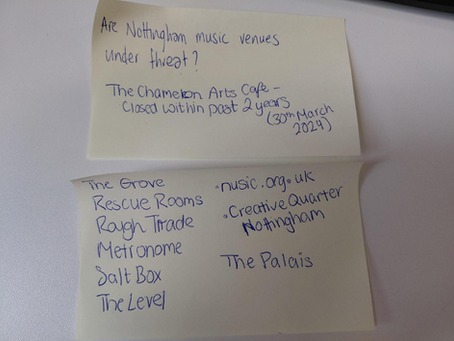 Are Nottingham music venues
under threat?
The Chameleon Arts Cafe -
Closed within past 2 years
(30th March
2024)
The Grove
Rescue Rooms
Rough Trade
Metronome
Salt Box
The Level
• nusic.org.uk
• Creative Quarter
Nottingham
The Palais